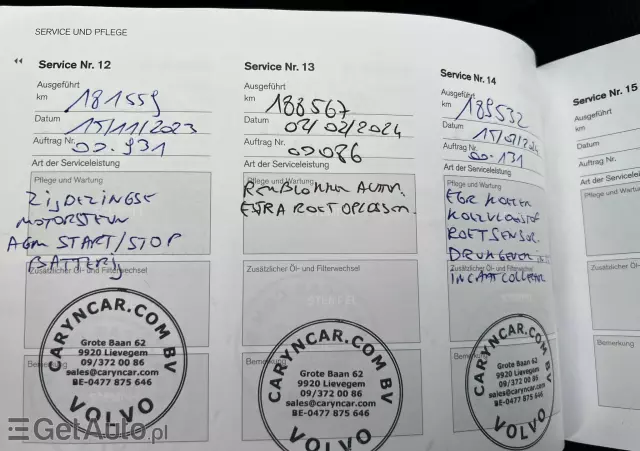 SERVICE UND PFLEGE
Service Nr. 12
Ausgeführt
km 181559
Datum 15/11/2023
Auftrag Nr. 00.931
Art der Serviceleistung
Pflege und Wartung
MOTORSTEUN
AGM START/STOP
BATTERIJ
Zusätzlicher Öl- und Filterwechsel
Bemerkung
CARYNCAR.COM BV
Grote Baan 62
9920 Lievegem
09/372 00 86
sales@caryncar.com
BE-0477 875 646
VOLVO
Service Nr. 13
Ausgeführt
km 188567
Datum 02/02/2024
Auftrag Nr. 00086
Art der Serviceleistung
Pflege und Wartung
REMBLOKKEN ACHTER.
EXTRA ROET OPLOSSEN.
Zusätzlicher Öl- und Filterwechsel
Bemerkung
CARYNCAR.COM BV
Grote Baan 62
9920 Lievegem
09/372 00 86
sales@caryncar.com
BE-0477 875 646
VOLVO
Service Nr. 14
Ausgeführt
km 189532
Datum
Auftrag Nr. 00.131
Art der Serviceleistung
Pflege und Wartung
EGR
ROETSENSOR.
Zusätzlicher Öl- und Filterwechsel
Bemerkung
CARYNCAR.COM BV
Grote Baan 62
9920 Lievegem
09/372 00 86
sales@caryncar.com
BE-0477 875 646
VOLVO
Service Nr. 15
Ausgeführt
km
Datum
Auftrag Nr.
Art der Serviceleistung
Pflege und Wartung
Zusätzlicher Öl- und
Bemerkung
GetAuto.pl